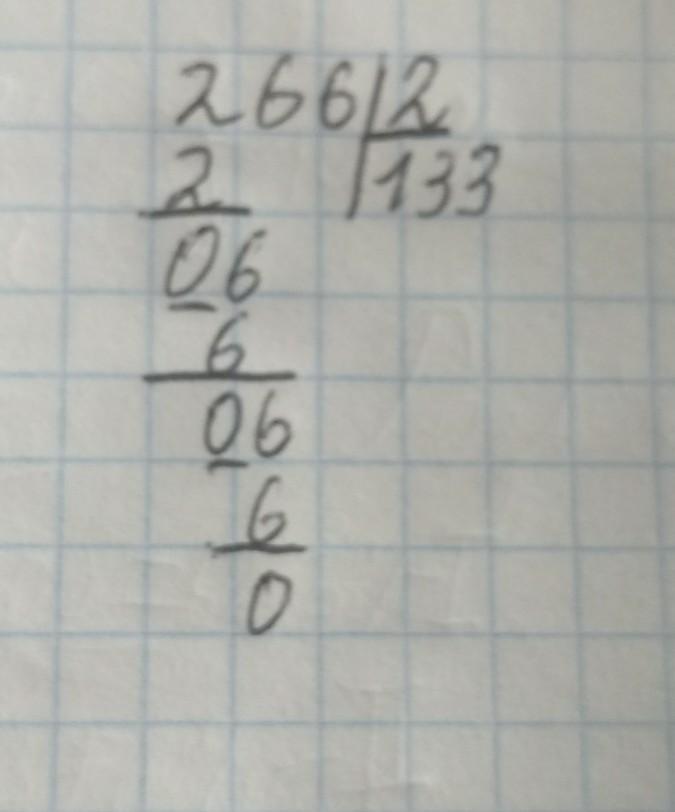 266|2
2 133
06
6
06
6
0